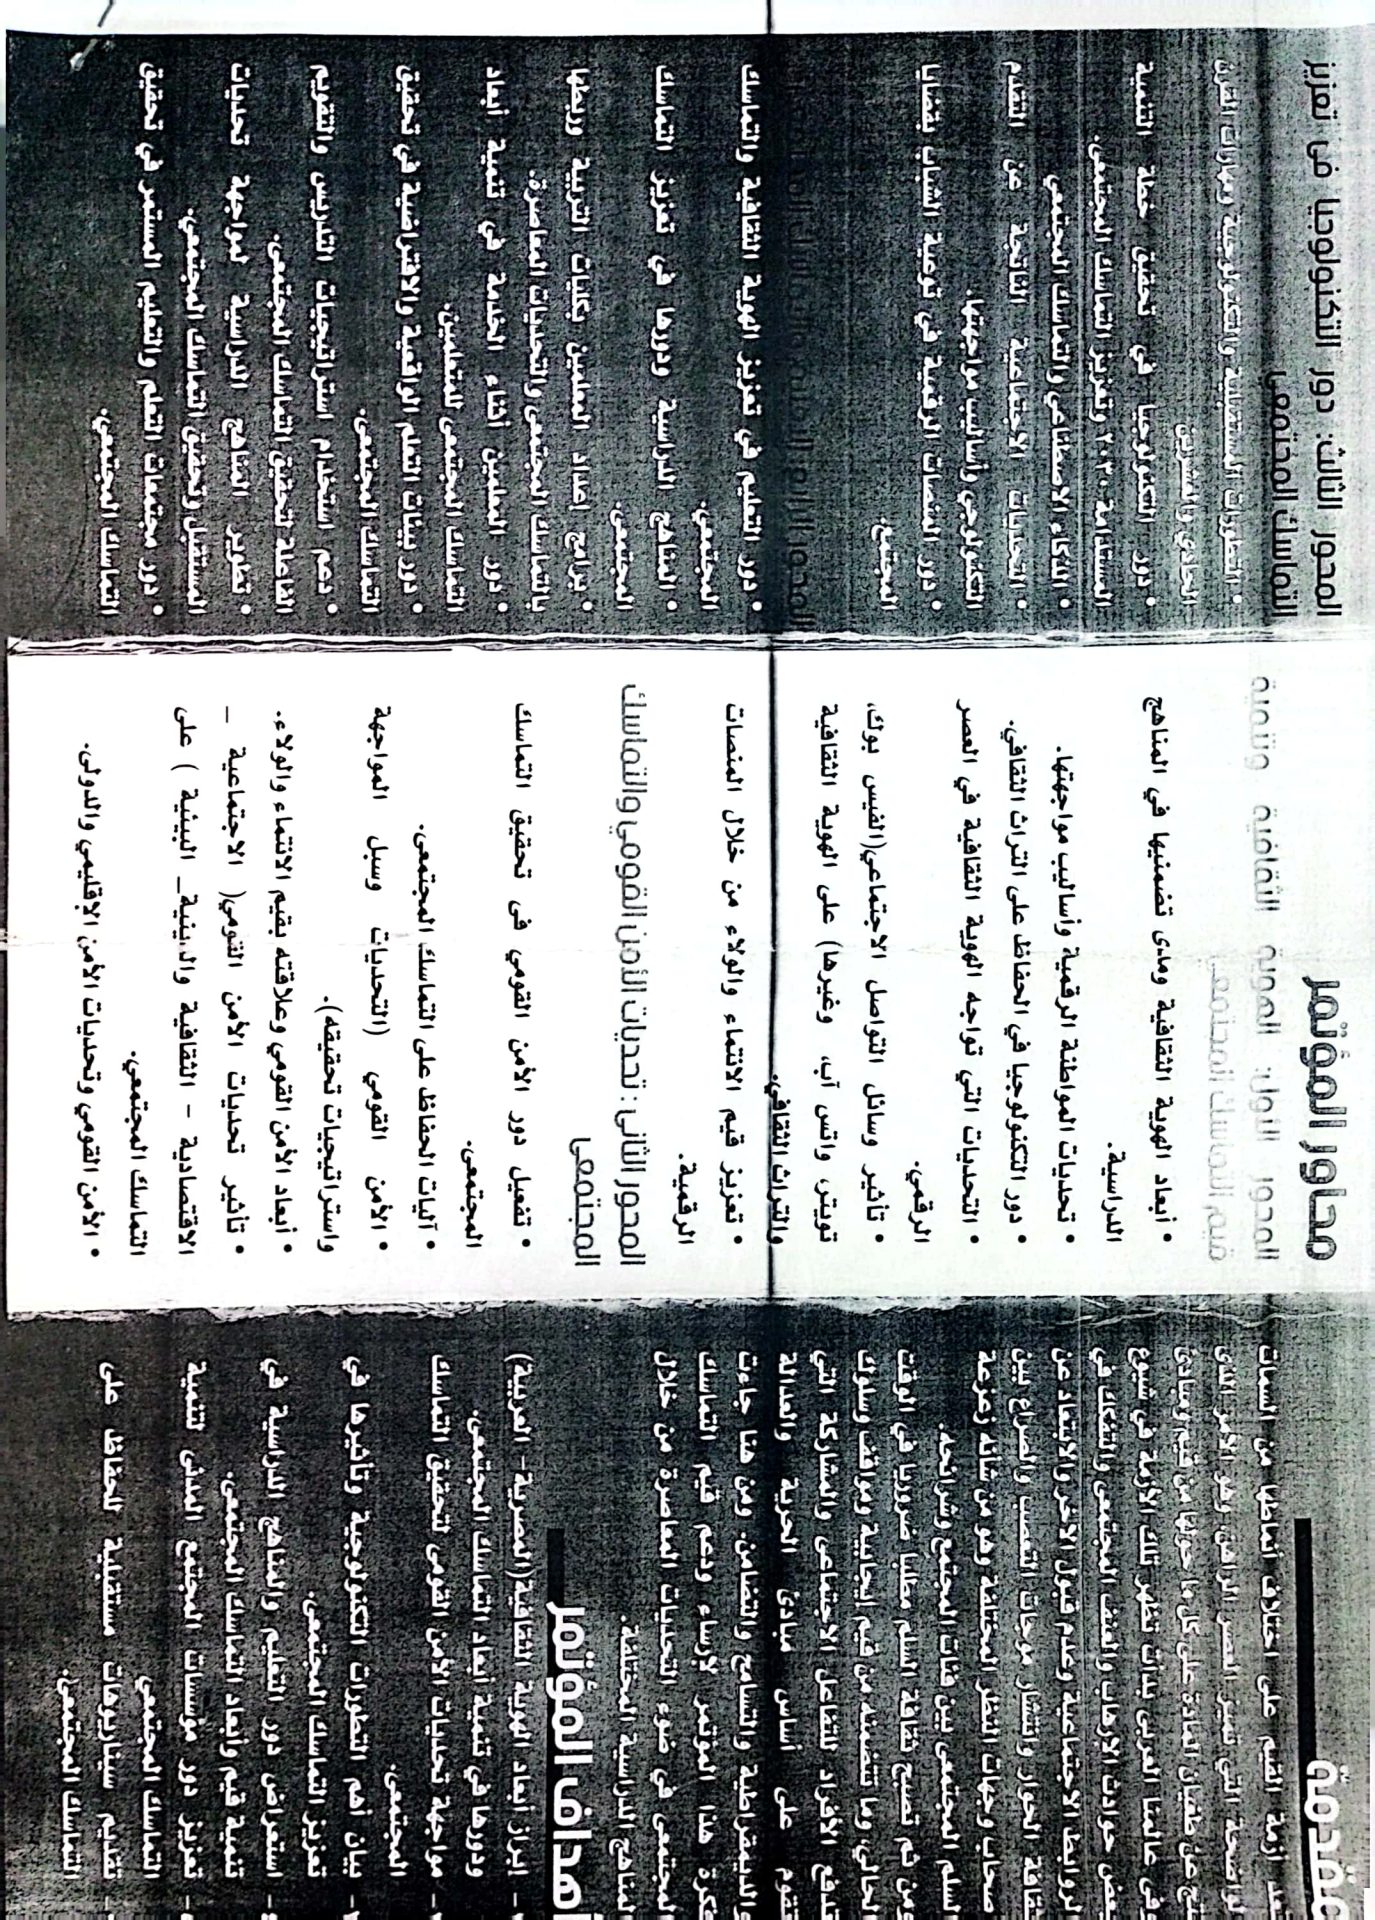 مقدمة
تعد أزمة القيم على اختلاف أنماطها من السمات
الواضحة التي تميز العصر الراهن، وهو الأمر الذى
نتج عن طغيان المادة على كل ما حولها من قيم ومبادئ
وفى عالمنا العربى بدأت تظهر تلك الأزمة في شيوع
بعض حوادث الإرهاب والعنف المجتمعى والتفكك في
الروابط الاجتماعية وعدم قبول الآخر والابتعاد عن
ثقافة الحوار وانتشار موجات التعصب والصراع بين
أصحاب وجهات النظر المختلفة وهو من شأنه زعزعة
السلم المجتمعى بين فئات المجتمع وشرائحه.
ومن ثم تصبح ثقافة السلم مطلباً ضروريا في الوقت
الحالي وما تتضمنه من قيم إيجابية ومواقف وسلوك
تدفع الأفراد للتفاعل الاجتماعى والمشاركة التي
تقوم على أساس مبادئ الحرية والعدالة
والديمقراطية والتسامح والتضامن. ومن هنا جاءت
فكرة هذا المؤتمر لإرساء ودعم قيم التماسك
المجتمعى في ضوء التحديات المعاصرة من خلال
المناهج الدراسية المختلفة.
أهداف المؤتمر
- ابراز أبعاد الهوية الثقافية(المصرية- العربية)
ودورها في تنمية أبعاد التماسك المجتمعى.
- مواجهة تحديات الأمن القومى لتحقيق التماسك
المجتمعى.
- بيان أهم التطورات التكنولوجية وتأثيرها في
تعزيز التماسك المجتمعى.
- استعراض دور التعليم والمناهج الدراسية في
تنمية قيم وأبعاد التماسك المجتمعى.
- تعزيز دور مؤسسات المجتمع المدنى لتنمية
التماسك المجتمعي
- تقديم سيناريوهات مستقبلية للحفاظ على
التماسك المجتمعي.
محاور المؤتمر
المحور الأول: الهوية الثقافية وتنمية
قيم التماسك المجتمعي
• أبعاد الهوية الثقافية ومدى تضمنيها في المناهج
الدراسية.
• تحديات المواطنة الرقمية وأساليب مواجهتها.
• دور التكنولوجيا في الحفاظ على التراث الثقافي.
• التحديات التي تواجه الهوية الثقافية في العصر
الرقمي.
• تأثير وسائل التواصل الاجتماعي(الفيس بوك،
تويتر، واتس آب، وغيرها) على الهوية الثقافية
والتراث الثقافي.
• تعزيز قيم الانتماء والولاء من خلال المنصات
الرقمية.
المحور الثانى : تحديات الأمن القومي والتماسك
المجتمعى
• تفعيل دور الأمن القومي فى تحقيق التماسك
المجتمعى.
• آليات الحفاظ على التماسك المجتمعى.
• الأمن القومي (التحديات وسبل المواجهة
واستراتيجيات تحقيقه).
• أبعاد الأمن القومي وعلاقته بقيم الانتماء والولاء.
• تأثير تحديات الأمن القومي( الاجتماعية –
الاقتصادية - الثقافية والدينية_ البيئية ) على
التماسك المجتمعي.
• الأمن القومي وتحديات الأمن الإقليمي والدولى.
المحور الثالث: دور التكنولوجيا فى تعزيز
التماسك المجتمعى
• التطورات المستقبلية والتكنولوجية ومهارات القرن
الحادي والعشرين
• دور التكنولوجيا في تحقيق خطة التنمية
المستدامة ٢٠٣٠ وتعزيز التماسك المجتمعى.
• الذكاء الاصطناعي والتماسك المجتمعى
• التحديات الاجتماعية الناتجة عن التقدم
التكنولوجي وأساليب مواجهتها.
• دور المنصات الرقمية في توعية الشباب بقضايا
المجتمع.
• دور التعليم في تعزيز الهوية الثقافية والتماسك
المجتمعي.
• المناهج الدراسية ودورها في تعزيز التماسك
المجتمعى.
• برامج إعداد المعلمين بكليات التربية وربطها
بالتماسك المجتمعى والتحديات المعاصرة.
• دور المعلمين أثناء الخدمة في تنمية أبعاد
التماسك المجتمعى للمتعلمين.
• دور بيئات التعلم الواقعية والافتراضية في تحقيق
التماسك المجتمعى.
• دعم استخدام استراتيجيات التدريس والتقويم
الفاعلة لتحقيق التماسك المجتمعى.
• تطوير المناهج الدراسية لمواجهة تحديات
المستقبل وتحقيق التماسك المجتمعي.
• دور مجتمعات التعلم والتعليم المستمر في تحقيق
التماسك المجتمعي.